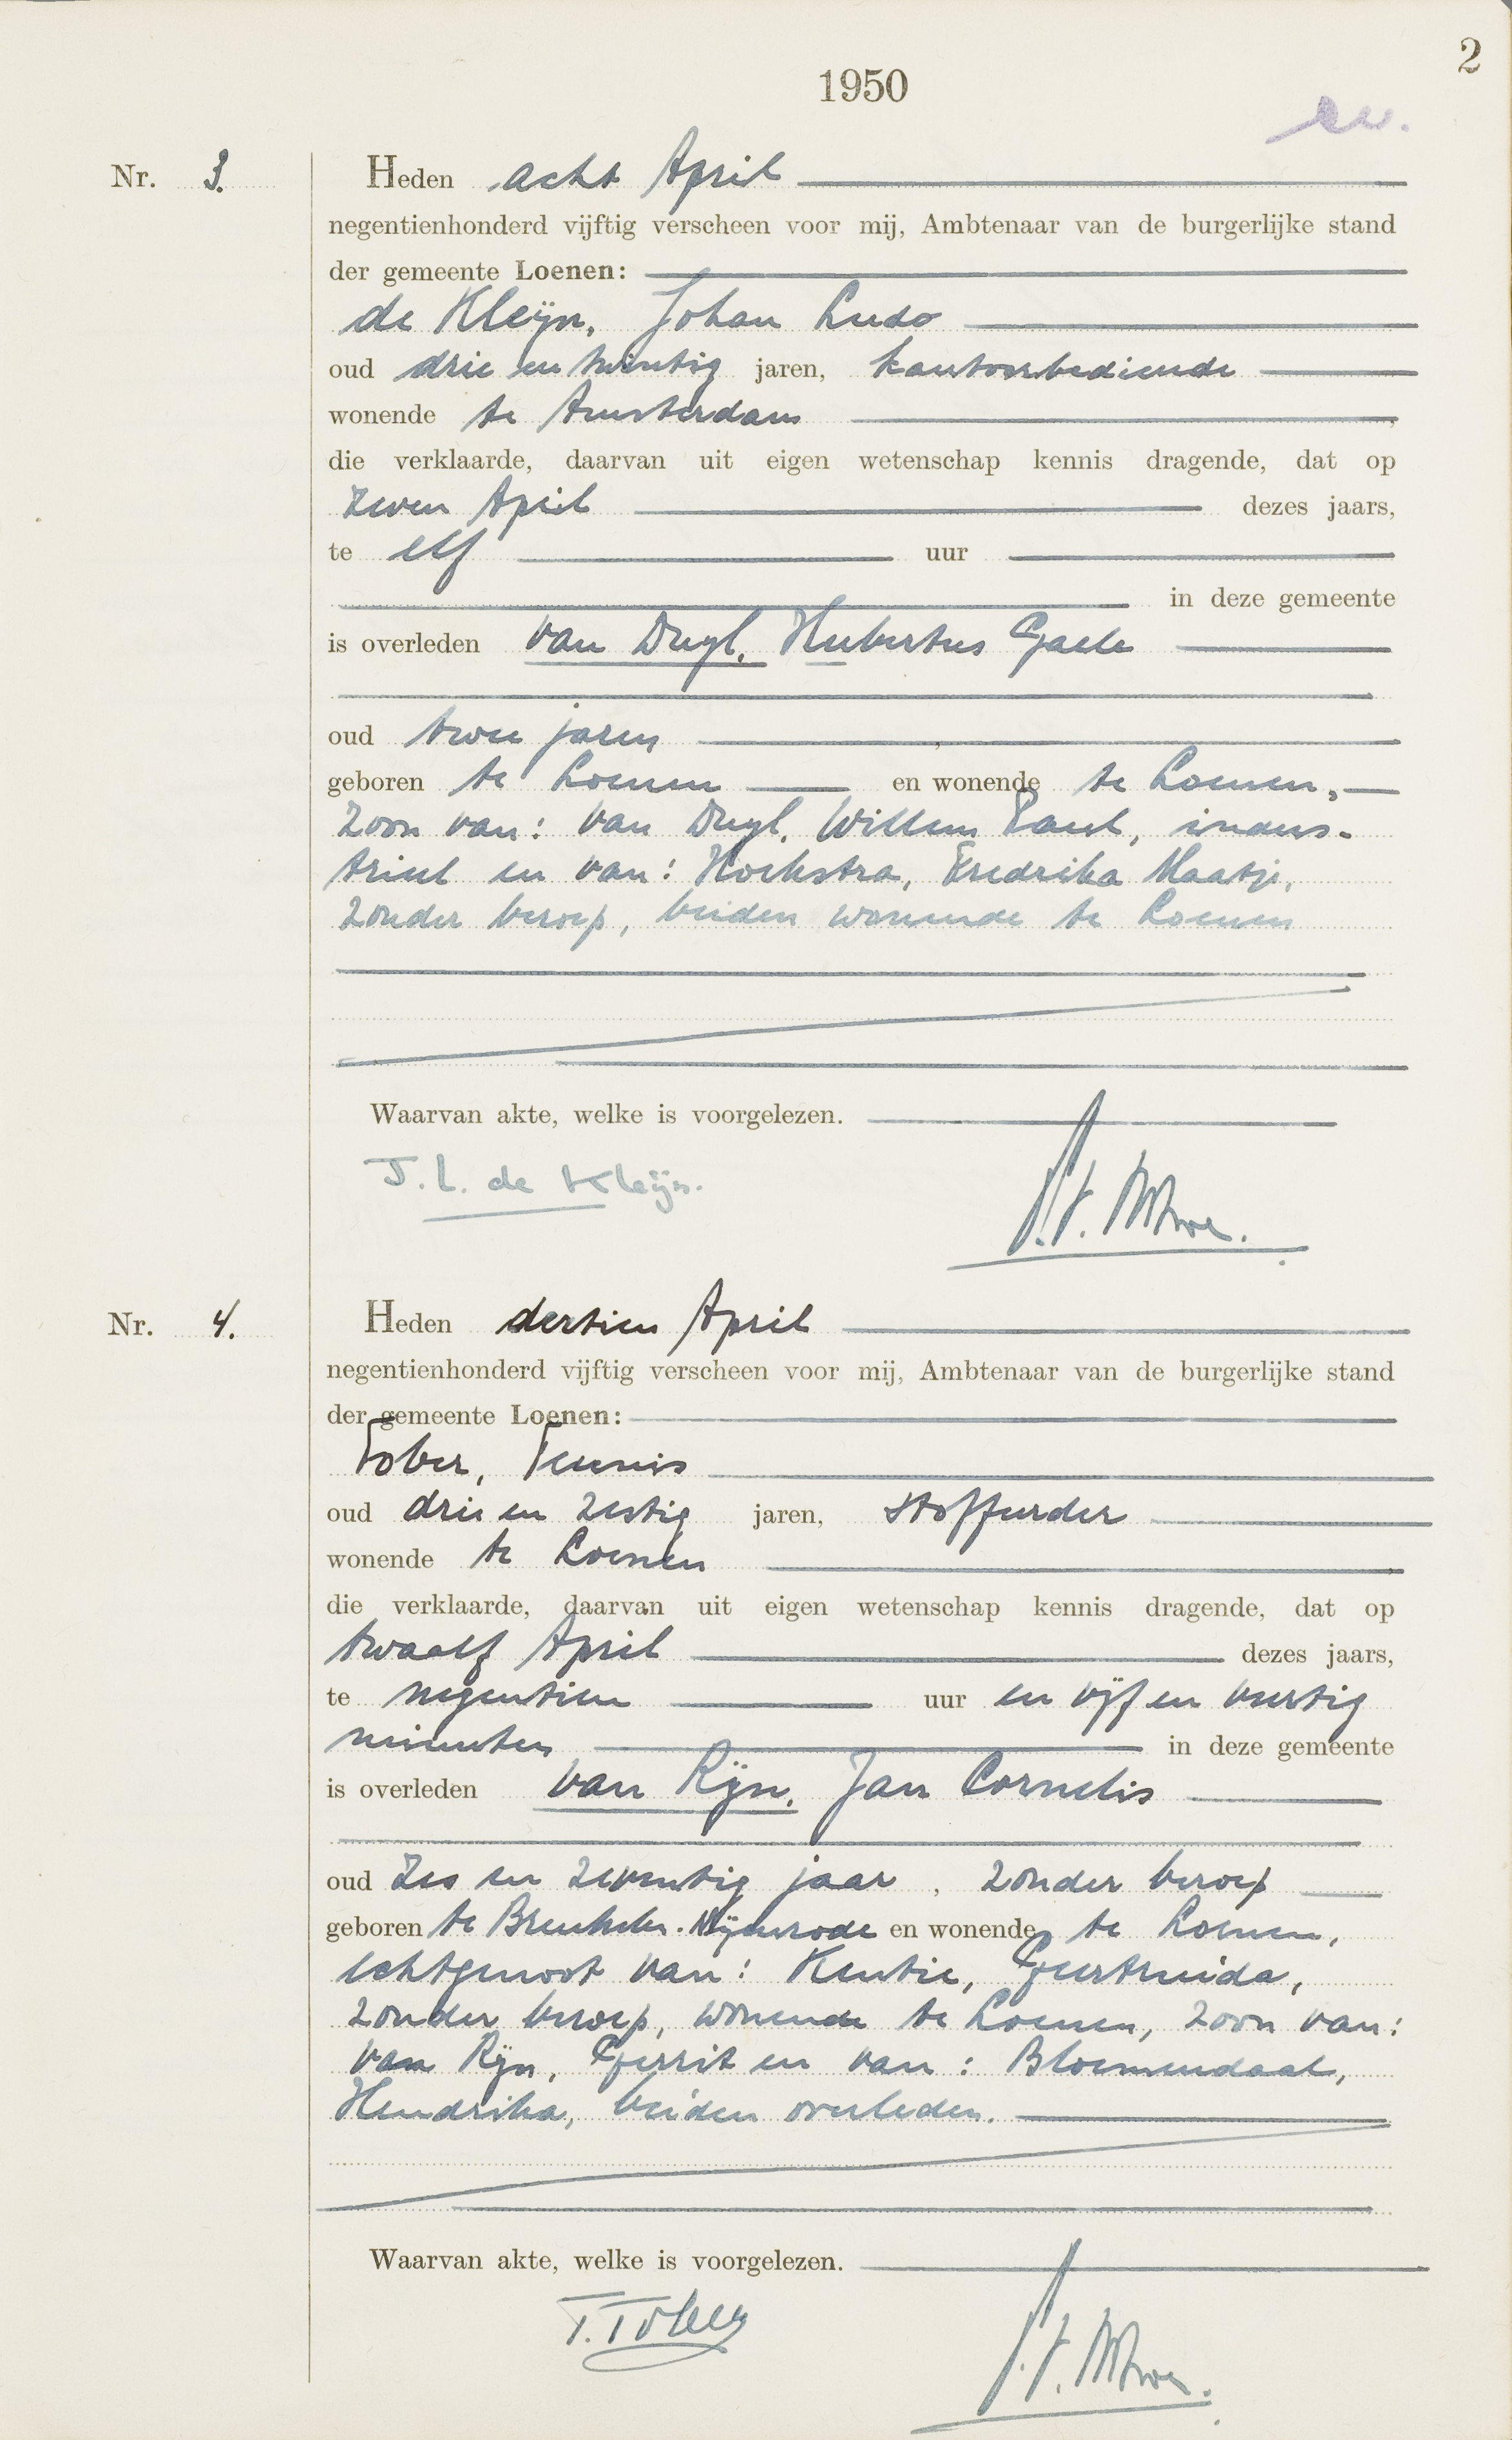 2
1950
Nr. 3.
Heden acht April
negentienhonderd vijftig verscheen voor mij, Ambtenaar van de burgerlijke stand
der gemeente Loenen:
de Kleijn, Johan Ludo
oud drie en twintig jaren, kantoorbediende
wonende te Amsterdam
die verklaarde, daarvan uit eigen wetenschap kennis dragende, dat op
zeven April dezes jaars,
te elf uur
in deze gemeente
is overleden van Duyl, Hubertus
oud twee jaren
geboren te Loenen en wonende te Loenen,
zoon van: van Duyl, Willem Paul, indus-
trieel en van: Hoekstra, Fredrika Maatje,
zonder beroep, beiden wonende te Loenen
Waarvan akte, welke is voorgelezen.
J. L. de Kleijn.
Nr. 4.
Heden dertien April
negentienhonderd vijftig verscheen voor mij, Ambtenaar van de burgerlijke stand
der gemeente Loenen:
Tober, Teunis
oud drie en zestig jaren, stoffeerder
wonende te Loenen
die verklaarde, daarvan uit eigen wetenschap kennis dragende, dat op
twaalf April dezes jaars,
te negentien uur en vijf en veertig
minuten in deze gemeente
is overleden van Rijn, Jan Cornelis
oud zes en zeventig jaar, zonder beroep
geboren te Breukelen-Nijenrode en wonende te Loenen,
echtgenoot van: Kentie, Geertruida,
zonder beroep, wonende te Loenen, zoon van:
van Rijn, Gerrit en van: Bloemendaal,
Hendrika, beiden overleden.
Waarvan akte, welke is voorgelezen.
T. Tober